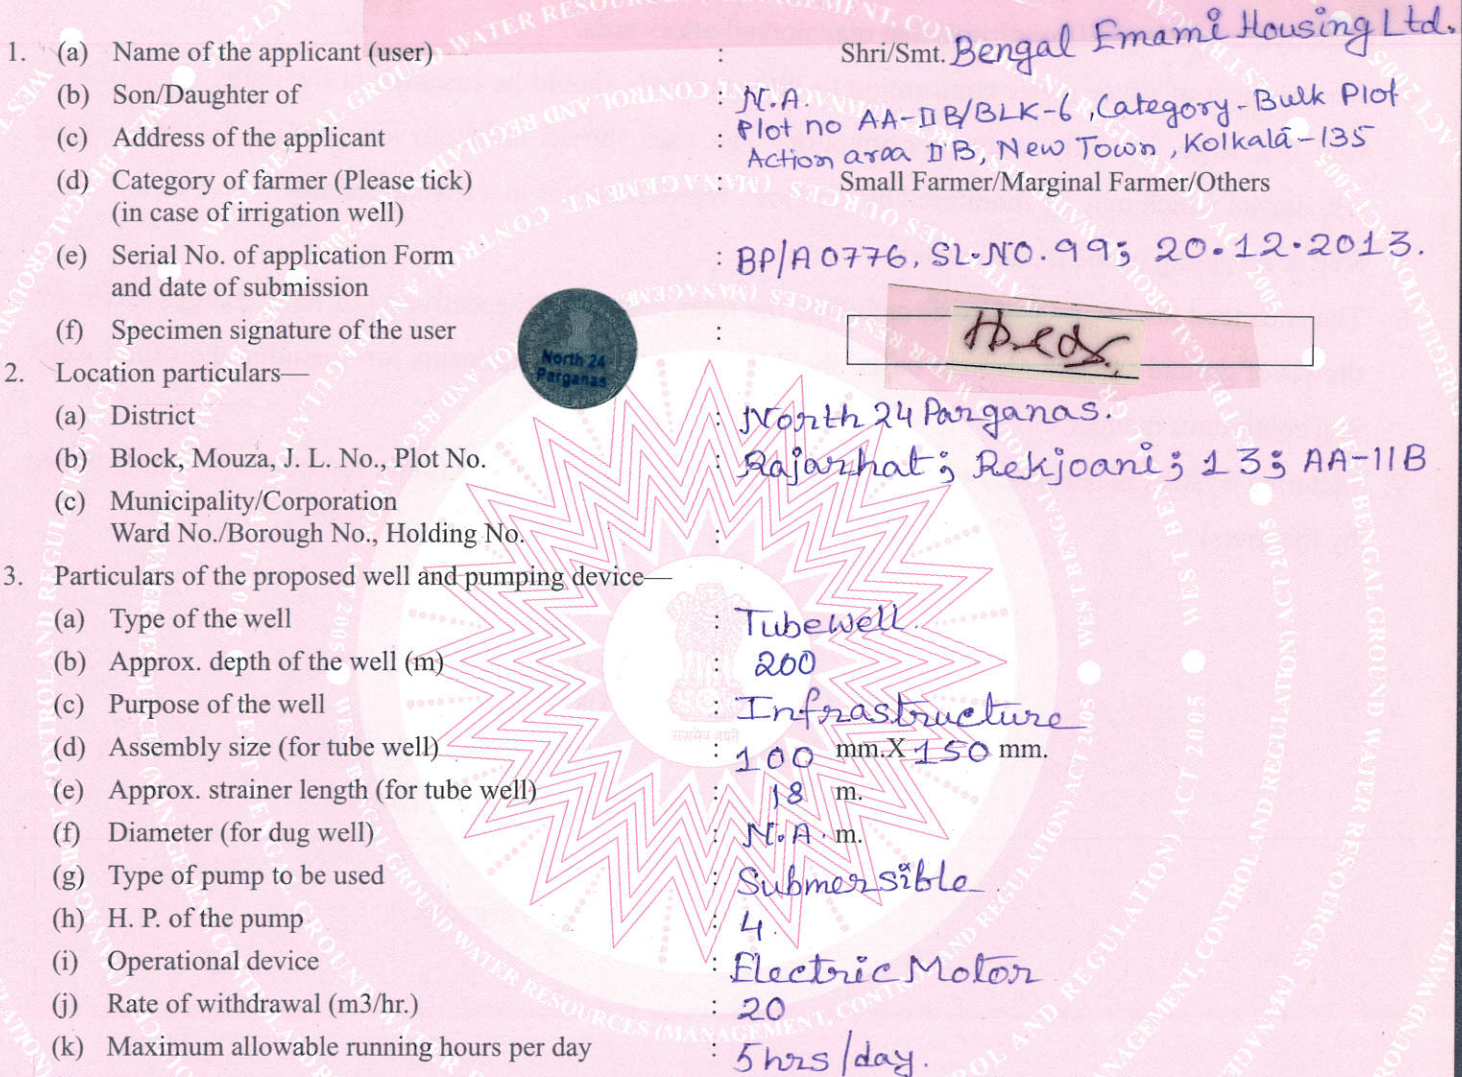 1. (a) Name of the applicant (user) : Shri/Smt. Bengal Emami Housing Ltd.
(b) Son/Daughter of : N.A.
(c) Address of the applicant : Plot no AA-IIB/BLK-6, Category-Bulk Plot
Action area IIB, New Town, Kolkata-135
(d) Category of farmer (Please tick) : Small Farmer/Marginal Farmer/Others
(in case of irrigation well)
(e) Serial No. of application Form : BP/A0776, SL.NO.99; 20.12.2013.
and date of submission
(f) Specimen signature of the user :
North 24
Parganas
2. Location particulars—
(a) District : North 24 Parganas.
(b) Block, Mouza, J. L. No., Plot No. : Rajarhat; Rekjoani; 13; AA-11B
(c) Municipality/Corporation
Ward No./Borough No., Holding No. :
3. Particulars of the proposed well and pumping device—
(a) Type of the well : Tubewell.
(b) Approx. depth of the well (m) : 200
(c) Purpose of the well : Infrastructure
(d) Assembly size (for tube well) : 100 mm.X 150 mm.
(e) Approx. strainer length (for tube well) : 18 m.
(f) Diameter (for dug well) : N.A. m.
(g) Type of pump to be used : Submersible.
(h) H. P. of the pump : 4.
(i) Operational device : Electric Motor
(j) Rate of withdrawal (m3/hr.) : 20
(k) Maximum allowable running hours per day : 5hrs/day.